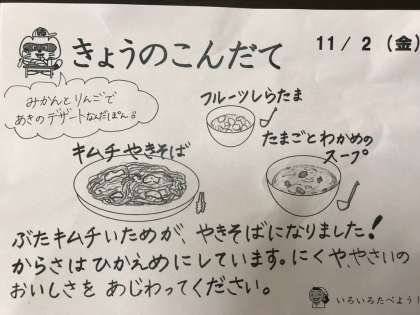 きょうのこんだて
11/2(金)
みかんとりんごで
あきのデザートなんだぽん。
フルーツしらたま
キムチやきそば
たまごとわかめの
スープ
ぶたキムチいためが、やきそばになりました!
からさはひかえめにしています。にくや、やさいの
おいしさを あじわってください。
いろいろたべよう!